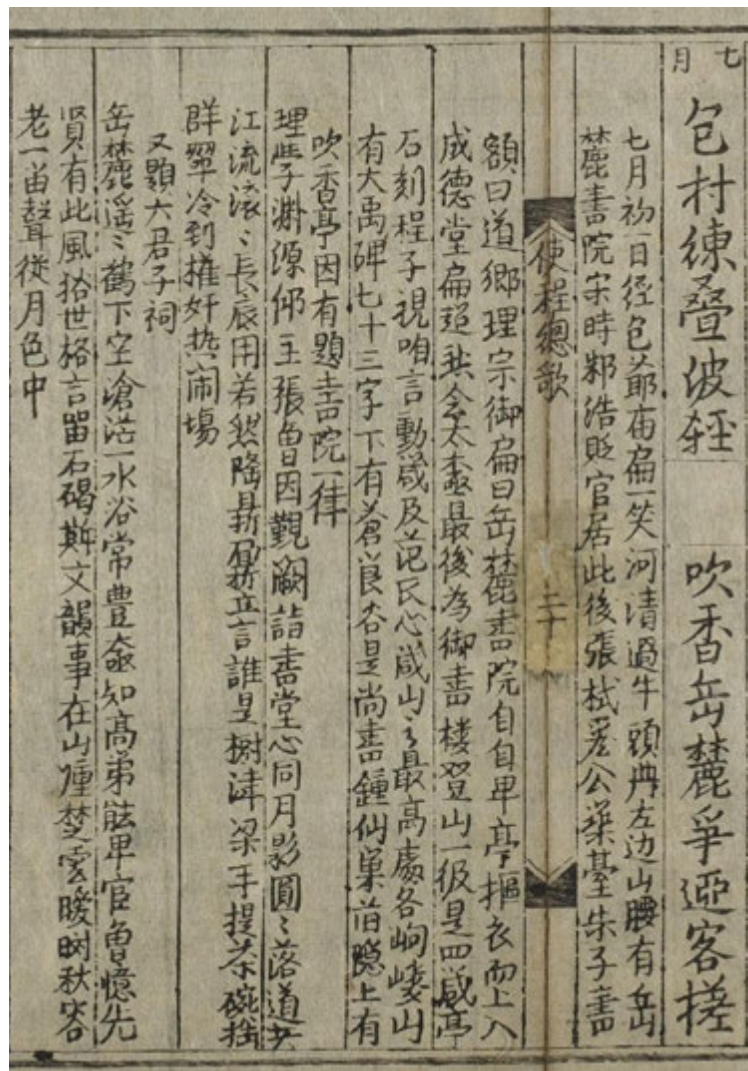 七月
包村練叠波輕 吹香岳麓爭迎客槎
七月初一日徑包爺庙扁一笑河清過牛頭冉左边山腰有岳
麓書院宋時鄒浩貶官居此後張栻爲公築臺朱子書
使程總歌 二十
額曰道鄉理宗御扁曰岳麓書院自自卑亭摳衣而上入
成德堂扁超然会太極最後為御書樓登山一級是四箴亭
石刻程子視咱言動箴及范氏心箴山〻最高處各岣嶁山
有大禹碑七十三字下有蒼筤谷是尚書鍾仙巢前隐上有
吹香亭因有題書院一律
理學淵源仰主張曾因覲闕詣書堂心同月影圓〻落道共
江流滚〻長辰用若然陶最夙立言誰是樹津梁手提茶碗捨
群翠冷到搉奸热闹場
又題六君子祠
岳麓遥〻鶴下空滄茫一水谷常豊叅知高弟能卑官曾憶先
賢有此風拾世格言畄石碣斯文韻事在山僮楚雲曖树秋容
老一笛聲從月色中